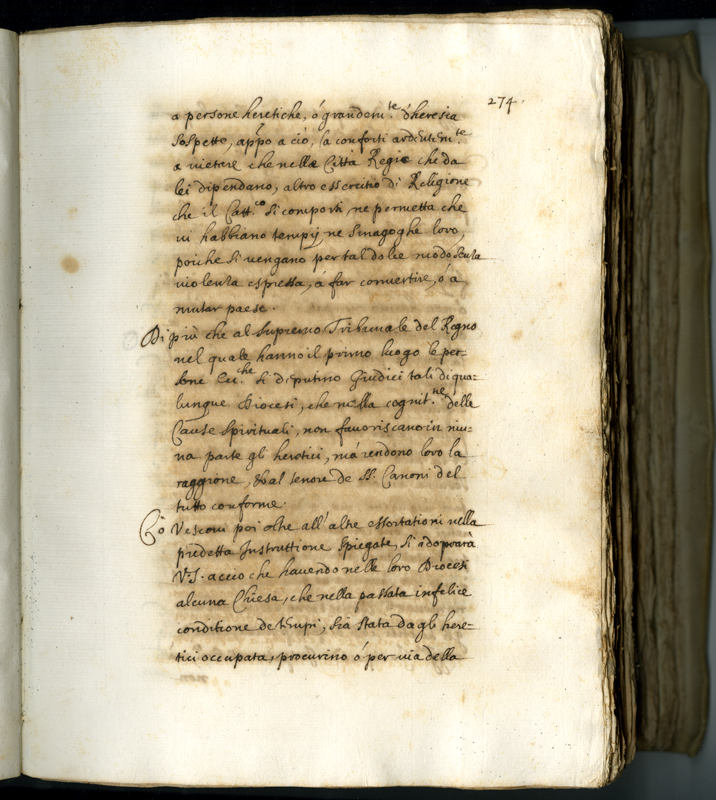 274.
a persone heretiche, ó grandem.te d'heresia
sospette, appo a ciò, la conforti ardentem.te
a vietare che nelle Citta Regie che da
lei dipendano, altro essercitio di Religione
che il Catt.co si comporti, ne permetta che
vi habbiano tempij ne Sinagoghe loro,
poiche si vengano per tal dolce modo senza
violenza espressa, á far convertire, ó a
mutar paese.
Di piú che al supremo Tribunale del Regno
nel quale hanno il primo luogo le per-
sone Ecc.che si deputino Giudici tali di qua-
lunque Diocesi, che nella cognit.ne delle
Cause Spirituali, non favoriscano in niu-
na parte gli heretici, má rendono loro la
raggione, & al tenore de SS. Canoni del
tutto conforme.
Có Vescovi poi oltre all'altre essortationi nella
predetta Instruttione spiegate, si adoprará
V.S. accio che havendo nelle loro Diocesi
alcuna Chiesa, che nella passata infelice
conditione de tempi, sia stata dagli here-
tici occupata, procurino ó per via della